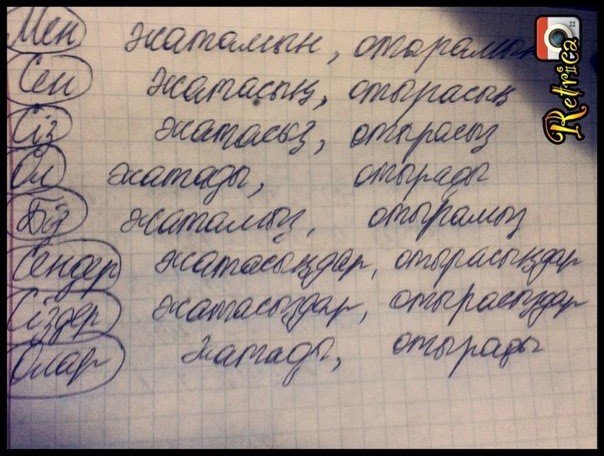 Мен жатамын, отырамын
Сен жатасың, отырасың
Сіз жатасыз, отырасыз
Ол жатады, отырады
Біз жатамыз, отырамыз
Сендер жатасыңдар, отырасыңдар
Сіздер жатасыздар, отырасыздар
Олар жатады, отырады
Retrica